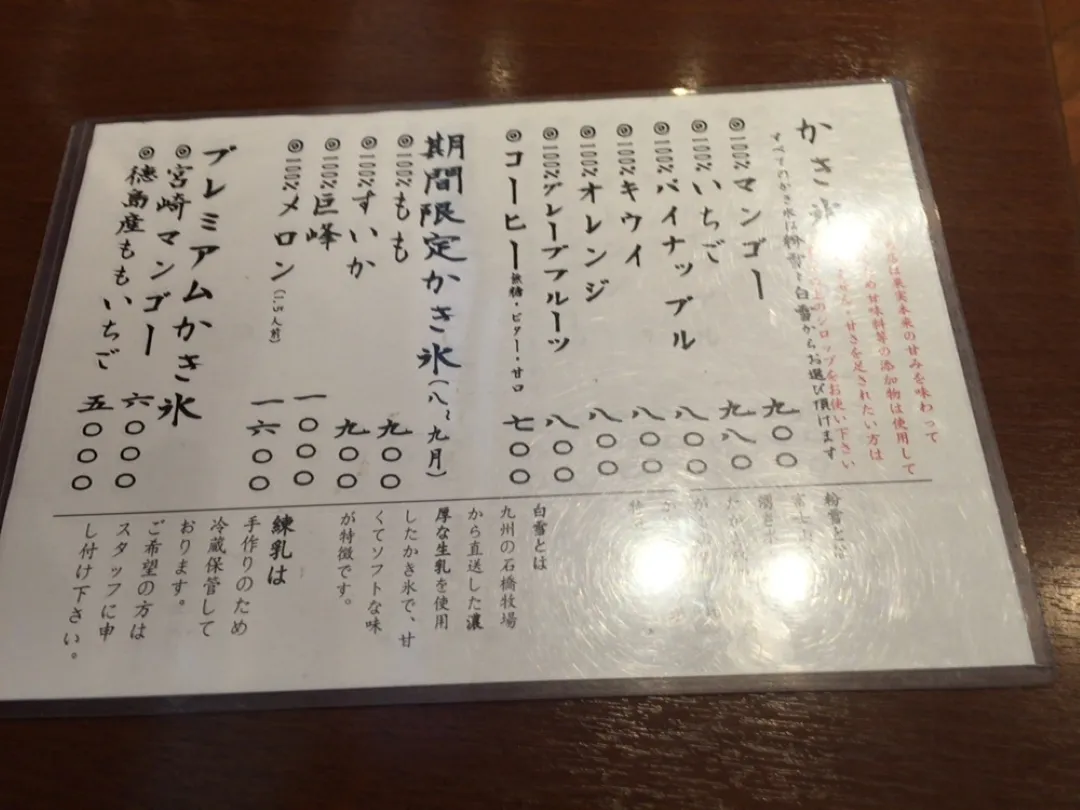 は果実本来の甘みを味わって
ため甘味料等の添加物は使用して
ません・甘さを足されたい方は
上のシロップをお使い下さい
かき氷
すべてのかき氷は粉雪と白雪からお選び頂けます
◎100%マンゴー 九〇〇
◎100%いちご 九八〇
◎100%パイナップル 八〇〇
◎100%キウイ 八〇〇
◎100%オレンジ 八〇〇
◎100%グレープフルーツ 八〇〇
◎コーヒー 無糖・ビター・甘口 七〇〇
期間限定かき氷(八〜九月)
◎100%もも 九〇〇
◎100%すいか 九〇〇
◎100%巨峰 一〇〇〇
◎100%メロン(1.5人前) 一六〇〇
プレミアムかき氷
◎宮崎マンゴー 六〇〇〇
◎徳島産ももいちご 五〇〇〇
粉雪とは
富士山
白雪とは
九州の石橋牧場
から直送した濃
厚な生乳を使用
したかき氷で、甘
くてソフトな味
が特徴です。
練乳は
手作りのため
冷蔵保管して
おります。
ご希望の方は
スタッフに申
し付け下さい。